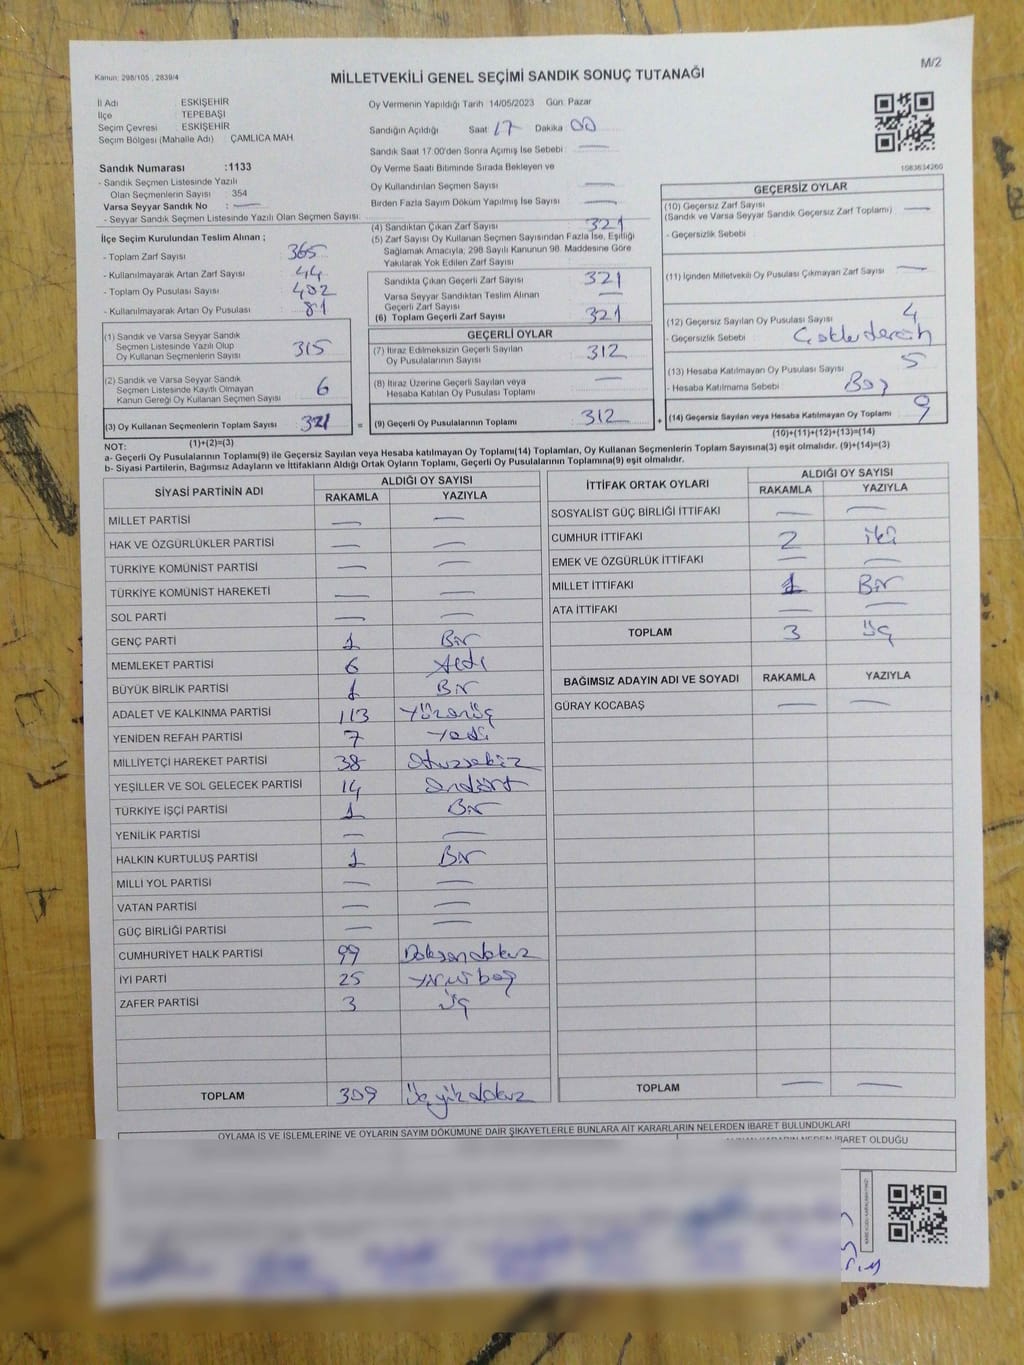 Kanun: 298/105 , 2839/4
MİLLETVEKİLİ GENEL SEÇİMİ SANDIK SONUÇ TUTANAĞI
M/2
İl Adı ESKİŞEHİR
İlçe TEPEBAŞI
Seçim Çevresi : ESKİŞEHİR
Seçim Bölgesi (Mahalle Adı) ÇAMLICA MAH
Sandık Numarası :1133
- Sandık Seçmen Listesinde Yazılı
Olan Seçmenlerin Sayısı : 354
Varsa Seyyar Sandık No : —
- Seyyar Sandık Seçmen Listesinde Yazılı Olan Seçmen Sayısı:
Oy Vermenin Yapıldığı Tarih 14/05/2023 Gün Pazar
Sandığın Açıldığı Saat 17 Dakika 00
Sandık Saat 17:00'den Sonra Açımış İse Sebebi : —
Oy Verme Saati Bitiminde Sırada Bekleyen ve
Oy Kullandırılan Seçmen Sayısı —
Birden Fazla Sayım Döküm Yapılmış İse Sayısı : —
1083634260
İlçe Seçim Kurulundan Teslim Alınan ;
- Toplam Zarf Sayısı : 365
- Kullanılmayarak Artan Zarf Sayısı : 44
- Toplam Oy Pusulası Sayısı : 402
- Kullanılmayarak Artan Oy Pusulası : 81
(1) Sandık ve Varsa Seyyar Sandık
Seçmen Listesinde Yazılı Olup
Oy Kullanan Seçmenlerin Sayısı 315
(2) Sandık ve Varsa Seyyar Sandık
Seçmen Listesinde Kayıtlı Olmayan
Kanun Gereği Oy Kullanan Seçmen Sayısı : 6
(3) Oy Kullanan Seçmenlerin Toplam Sayısı : 321
(1)+(2)=(3)
(4) Sandıktan Çıkan Zarf Sayısı : 321
(5) Zarf Sayısı Oy Kullanan Seçmen Sayısından Fazla İse, Eşitliği
Sağlamak Amacıyla, 298 Sayılı Kanunun 98. Maddesine Göre
Yakılarak Yok Edilen Zarf Sayısı :
Sandıkta Çıkan Geçerli Zarf Sayısı 321
Varsa Seyyar Sandıktan Teslim Alınan
Geçerli Zarf Sayısı —
(6) Toplam Geçerli Zarf Sayısı : 321
GEÇERLİ OYLAR
(7) İtiraz Edilmeksizin Geçerli Sayılan
Oy Pusulalarının Sayısı : 312
(8) İtiraz Üzerine Geçerli Sayılan veya
Hesaba Katılan Oy Pusulası Toplamı : —
= (9) Geçerli Oy Pusulalarının Toplamı : 312 +
GEÇERSİZ OYLAR
(10) Geçersiz Zarf Sayısı —
(Sandık ve Varsa Seyyar Sandık Geçersiz Zarf Toplamı)
- Geçersizlik Sebebi :
(11) İçinden Milletvekili Oy Pusulası Çıkmayan Zarf Sayısı : —
(12) Geçersiz Sayılan Oy Pusulası Sayısı : 4
- Geçersizlik Sebebi :
(13) Hesaba Katılmayan Oy Pusulası Sayısı : 5
- Hesaba Katılmama Sebebi : Boş
(14) Geçersiz Sayılan veya Hesaba Katılmayan Oy Toplamı : 9
(10)+(11)+(12)+(13)=(14)
NOT:
a- Geçerli Oy Pusulalarının Toplamı(9) ile Geçersiz Sayılan veya Hesaba katılmayan Oy Toplamı(14) Toplamları, Oy Kullanan Seçmenlerin Toplam Sayısına(3) eşit olmalıdır. (9)+(14)=(3)
b- Siyasi Partilerin, Bağımsız Adayların ve İttifakların Aldığı Ortak Oyların Toplamı, Geçerli Oy Pusulalarının Toplamına(9) eşit olmalıdır.
SİYASİ PARTİNİN ADI ALDIĞI OY SAYISI
RAKAMLA YAZIYLA
MİLLET PARTİSİ — —
HAK VE ÖZGÜRLÜKLER PARTİSİ — —
TÜRKİYE KOMÜNİST PARTİSİ — —
TÜRKİYE KOMÜNİST HAREKETİ — —
SOL PARTİ — —
GENÇ PARTİ 1 Bir
MEMLEKET PARTİSİ 6 Altı
BÜYÜK BİRLİK PARTİSİ 1 Bir
ADALET VE KALKINMA PARTİSİ 113 Yüzonüç
YENİDEN REFAH PARTİSİ 7 Yedi
MİLLİYETÇİ HAREKET PARTİSİ 38 Otuzsekiz
YEŞİLLER VE SOL GELECEK PARTİSİ 14 Ondört
TÜRKİYE İŞÇİ PARTİSİ 1 Bir
YENİLİK PARTİSİ — —
HALKIN KURTULUŞ PARTİSİ 1 Bir
MİLLİ YOL PARTİSİ — —
VATAN PARTİSİ — —
GÜÇ BİRLİĞİ PARTİSİ — —
CUMHURİYET HALK PARTİSİ 99 Doksandokuz
İYİ PARTİ 25 Yirmibeş
ZAFER PARTİSİ 3 Üç
TOPLAM 309 Üçyüzdokuz
İTTİFAK ORTAK OYLARI ALDIĞI OY SAYISI
RAKAMLA YAZIYLA
SOSYALİST GÜÇ BİRLİĞİ İTTİFAKI — —
CUMHUR İTTİFAKI 2 iki
EMEK VE ÖZGÜRLÜK İTTİFAKI — —
MİLLET İTTİFAKI 1 Bir
ATA İTTİFAKI — —
TOPLAM 3 Üç
BAĞIMSIZ ADAYIN ADI VE SOYADI RAKAMLA YAZIYLA
GÜRAY KOCABAŞ — —
TOPLAM — —
OYLAMA İŞ VE İŞLEMLERİNE VE OYLARIN SAYIM DÖKÜMÜNE DAİR ŞİKAYETLERLE BUNLARA AİT KARARLARIN NELERDEN İBARET BULUNDUKLARI
İBARET OLDUĞU